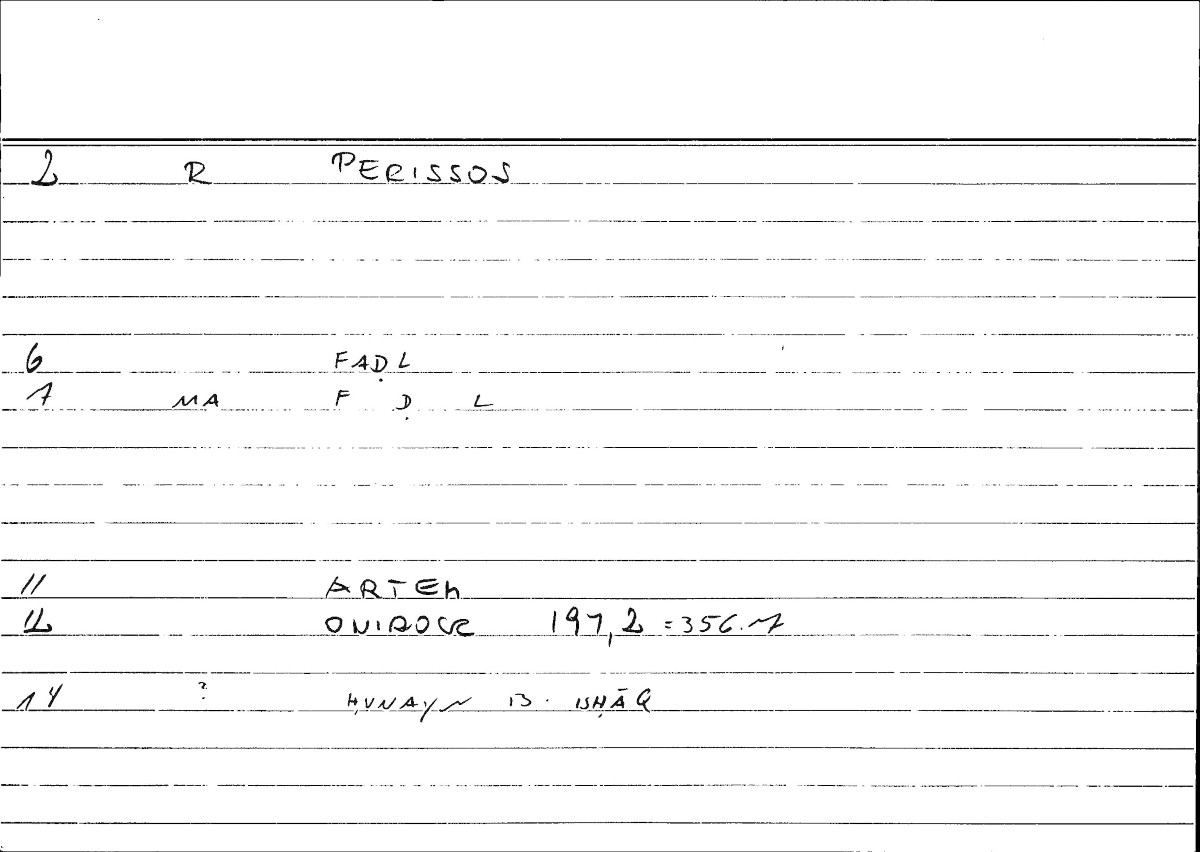 2 R PERISSOS
6 FAḌL
7 MA F Ḍ L
11 ARTEM
12 ONIROCR 197,2 = 356.7
14 ? ḤUNAYN B. ISḤĀQ